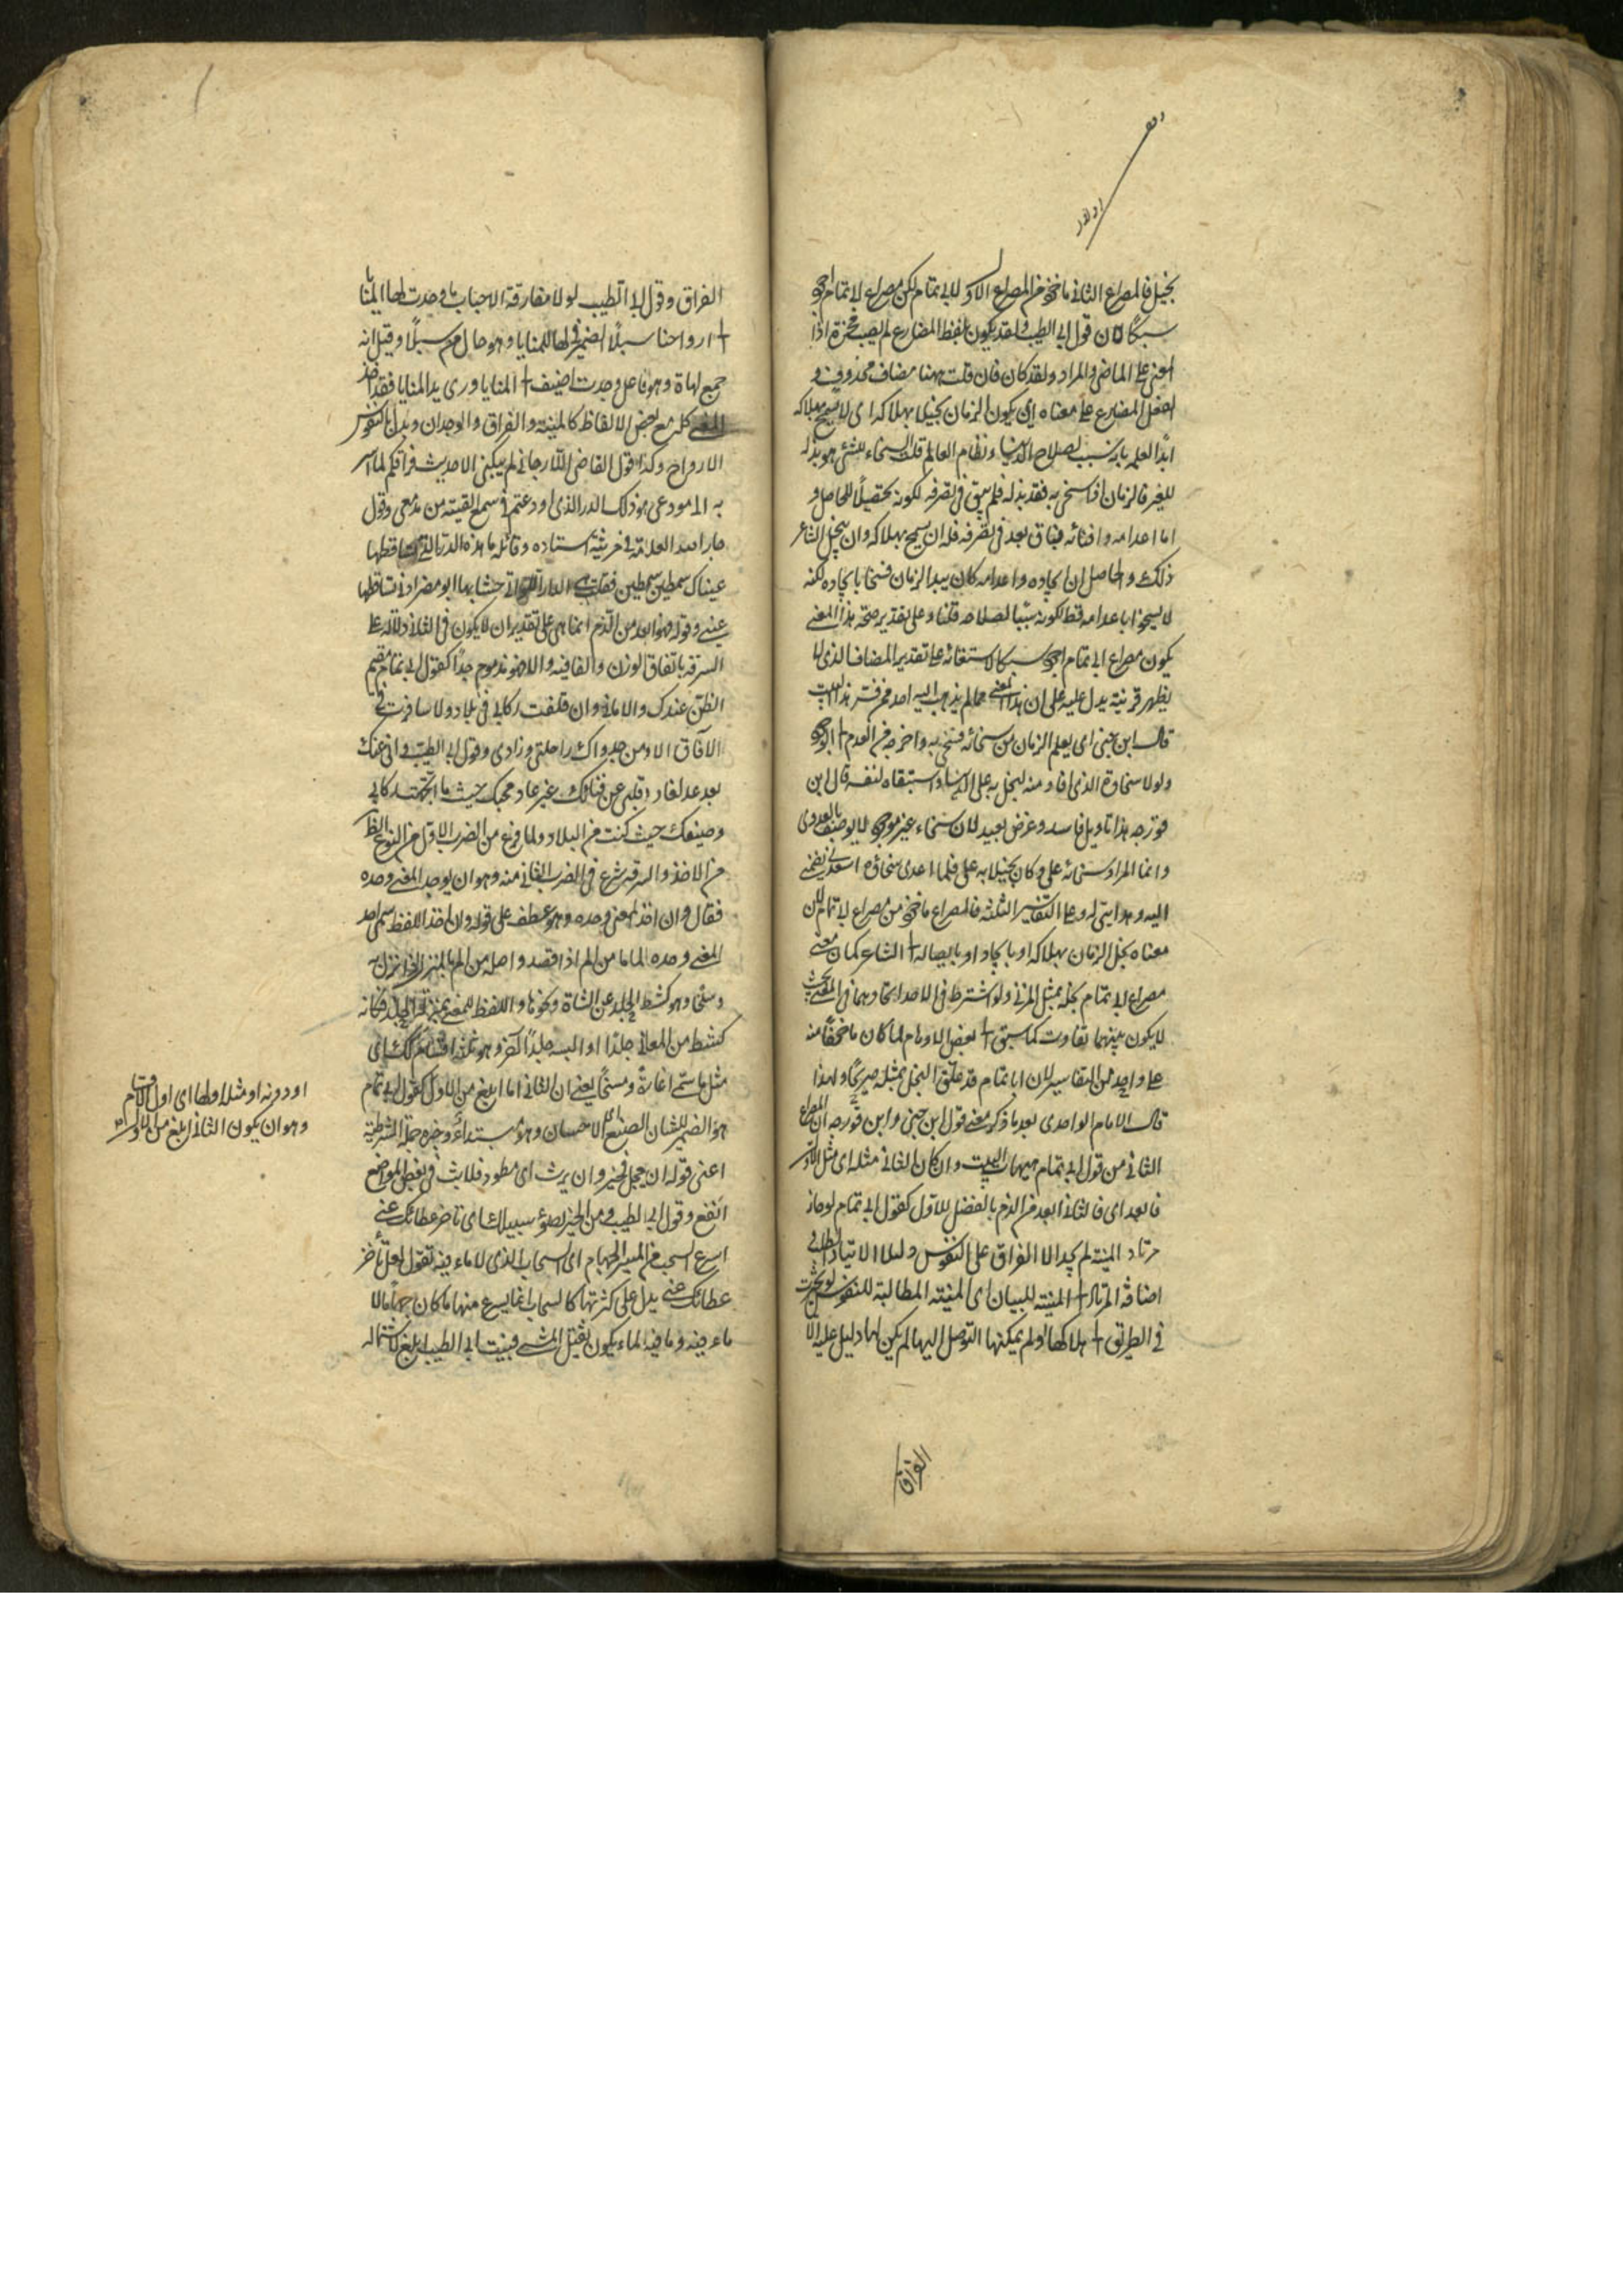 بخيل فالمصراع الثاني ماخوذ من المصراع الاول لابي تمام لكن مصراع ابي تمام اجود
سبكا لان قول ابي الطيب ولقد يكون بلفظ المضارع لم يصب محزه اذ
المعنى على الماضي والمراد ولقد كان فان قلت ههنا مضاف محذوف و
الفعل المضارع على معناه اي يكون الزمان بخيلا بهلاكه اي لا يسمح بهلاكه
ابدا لعلمه بانه سبب لصلاح الدنيا ونظام العالم قلت السخاء للشئ هو بذله
للغير فالزمان اذا سخى به فقد بذله فلم يبق في تصرفه لكونه تحصيلا للحاصل و
اما اعدامه وافنائه فباق بعد في تصرفه فله ان يسمح بهلاكه وان يبخل الشاعر
ذلك والحاصل ان ايجاده واعدامه كان بيد الزمان فسخا بايجاده لكنه
لا يسخو باعدامه قط لكونه سببا لصلاحه قلنا وعلى تقدير صحة هذا المعنى
يكون مصراع ابي تمام اجود سبكا لاستغنائه عن تقدير المضاف الذي لا
يظهر قرينة يدل عليه على ان هذا المعنى مما لم يذهب اليه احد ممن فسر هذا البيت
قال ابن جني اي يعلم الزمان من سخائه فسخى به واخرجه من العدم الى الوجود
ولولا سخاؤه الذي افاد منه لبخل به على الدنيا واستبقاه لنفسه قال ابن
فورجه هذا تاويل فاسد وغرض بعيد لان سخاء غير موجود لا يوصف بالعدوى
وانما المراد سخائه علي وكان بخيلا به علي فلما اعدى سخاؤه اسعدني بضمي
اليه وهدايتي له وعلى التفاسير الثلثة فالمصراع ماخوذ من مصراع ابي تمام لان
معناه بخل الزمان بهلاكه او بايجاده او بايصاله الى الشاعر كما ان معنى
مصراع ابي تمام بخله بمثل المرثي ولو اشترط في الاخذ اتحادهما في المعنى بحيث
لا يكون بينهما تفاوت كما سبق الى بعض الاوهام لما كان ماخوذا منه
على واحد من التفاسير لان ابا تمام قد علق البخل بمثله صريحا ولهذا
قال الامام الواحدي بعد ما ذكر معنى قول ابن جني وابن فورجه ان المصراع
الثاني من قول ابي تمام هيهات البيت وان كان الثاني مثله اي مثل الاول
فابعد اي فالثاني ابعد من الذم والفضل للاول كقول ابي تمام لو حار
مرتاد المنية لم يجد الا الفراق على النفوس دليلا الارتياد الطلب
اضافة المرتاد الى المنية للبيان اي المنية المطالبة للنفوس لو تحيرت
في الطريق الى هلاكها ولم يمكنها التوصل اليها لم يكن لها دليل عليه الا
الفراق
الفراق وقول ابي الطيب لولا مفارقة الاحباب ما وجدت لها المنايا
الى ارواحنا سبلا الضمير في لها للمنايا وهو حال من سبلا وقيل انه
جمع لهاة وهو فاعل وجدت اضيف الى المنايا وروى يد المنايا فقد اخذ
المعنى كله مع بعض الالفاظ كالمنية والفراق والوجدان وبدل بالنفوس
الارواح وكذا قول القاضي الارجاني لم يبكني الا حديث فراقكم لما اسر
به الى مودعي هو ذلك الدر الذي اودعتم في مسمعي القيته من مدمعي وقول
جار الله العلامة في مرثية استاده وقائلة ما هذه الدرر التي تساقطها
عيناك سمطين سمطين فقلت هي الدرر التي حشا بها ابو مضر اذني تساقطها
عيني وقوله فهو ابعد من الذم انما هي على تقدير ان لا يكون في الثاني دلالة على
السرقة باتفاق الوزن والقافية والا فهو مذموم جدا كقول ابي تمام مقيم
الظن عندك والاماني وان قلقت ركابي في البلاد ولا سافرت في
الآفاق الا ومن جدواك راحلتي وزادي وقول ابي الطيب واني عنك
بعد غد لغاد وقلبي عن فنائك غير غاد محبك حيث ما اتجهت ركابي
وضيفك حيث كنت من البلاد ولما فرغ من الضرب الاول من النوع الظاهر
من الاخذ والسرقة شرع في الضرب الثاني منه وهو ان يوخذ المعنى وحده
فقال وان اخذ المعنى وحده وهو عطف على قوله وان اخذ اللفظ سمى اخذ
المعنى وحده الماما من الم اذا قصد واصله من الم بالمنزل اذا نزل به
وسلخا وهو كشط الجلد عن الشاة ونحوها واللفظ للمعنى بمنزلة الجلد فكانه
كشط من المعاني جلدا والبسه جلدا آخر وهو ثلثة اقسام كذلك اي
مثل ما سمى اغارة ومسخا يعني ان الثاني اما ابلغ من الاول كقول ابي تمام
هو الضمير للشان الصنع اي الاحسان وهو مبتداء وخبره جملة الشرطية
اعني قوله ان يعجل فخير وان يرث اي يبطؤ فلريث في بعض المواضع
انفع وقول ابي الطيب ومن الخير بطؤ سيبك اي تاخر عطائك عني
اسرع السحب في المسير الجهام اي السحاب الذي لا ماء فيه تقول لعل تاخر
عطائك عني يدل على كثرتها كالسحاب انما يسرع منها ما كان جهاما لا
ماء فيه وما فيه الماء يكون ثقيل المشي فبيت ابي الطيب ابلغ لاشتماله
او دونه او مثله اولها اي اول الاقسام
وهو ان يكون الثاني ابلغ من الاول